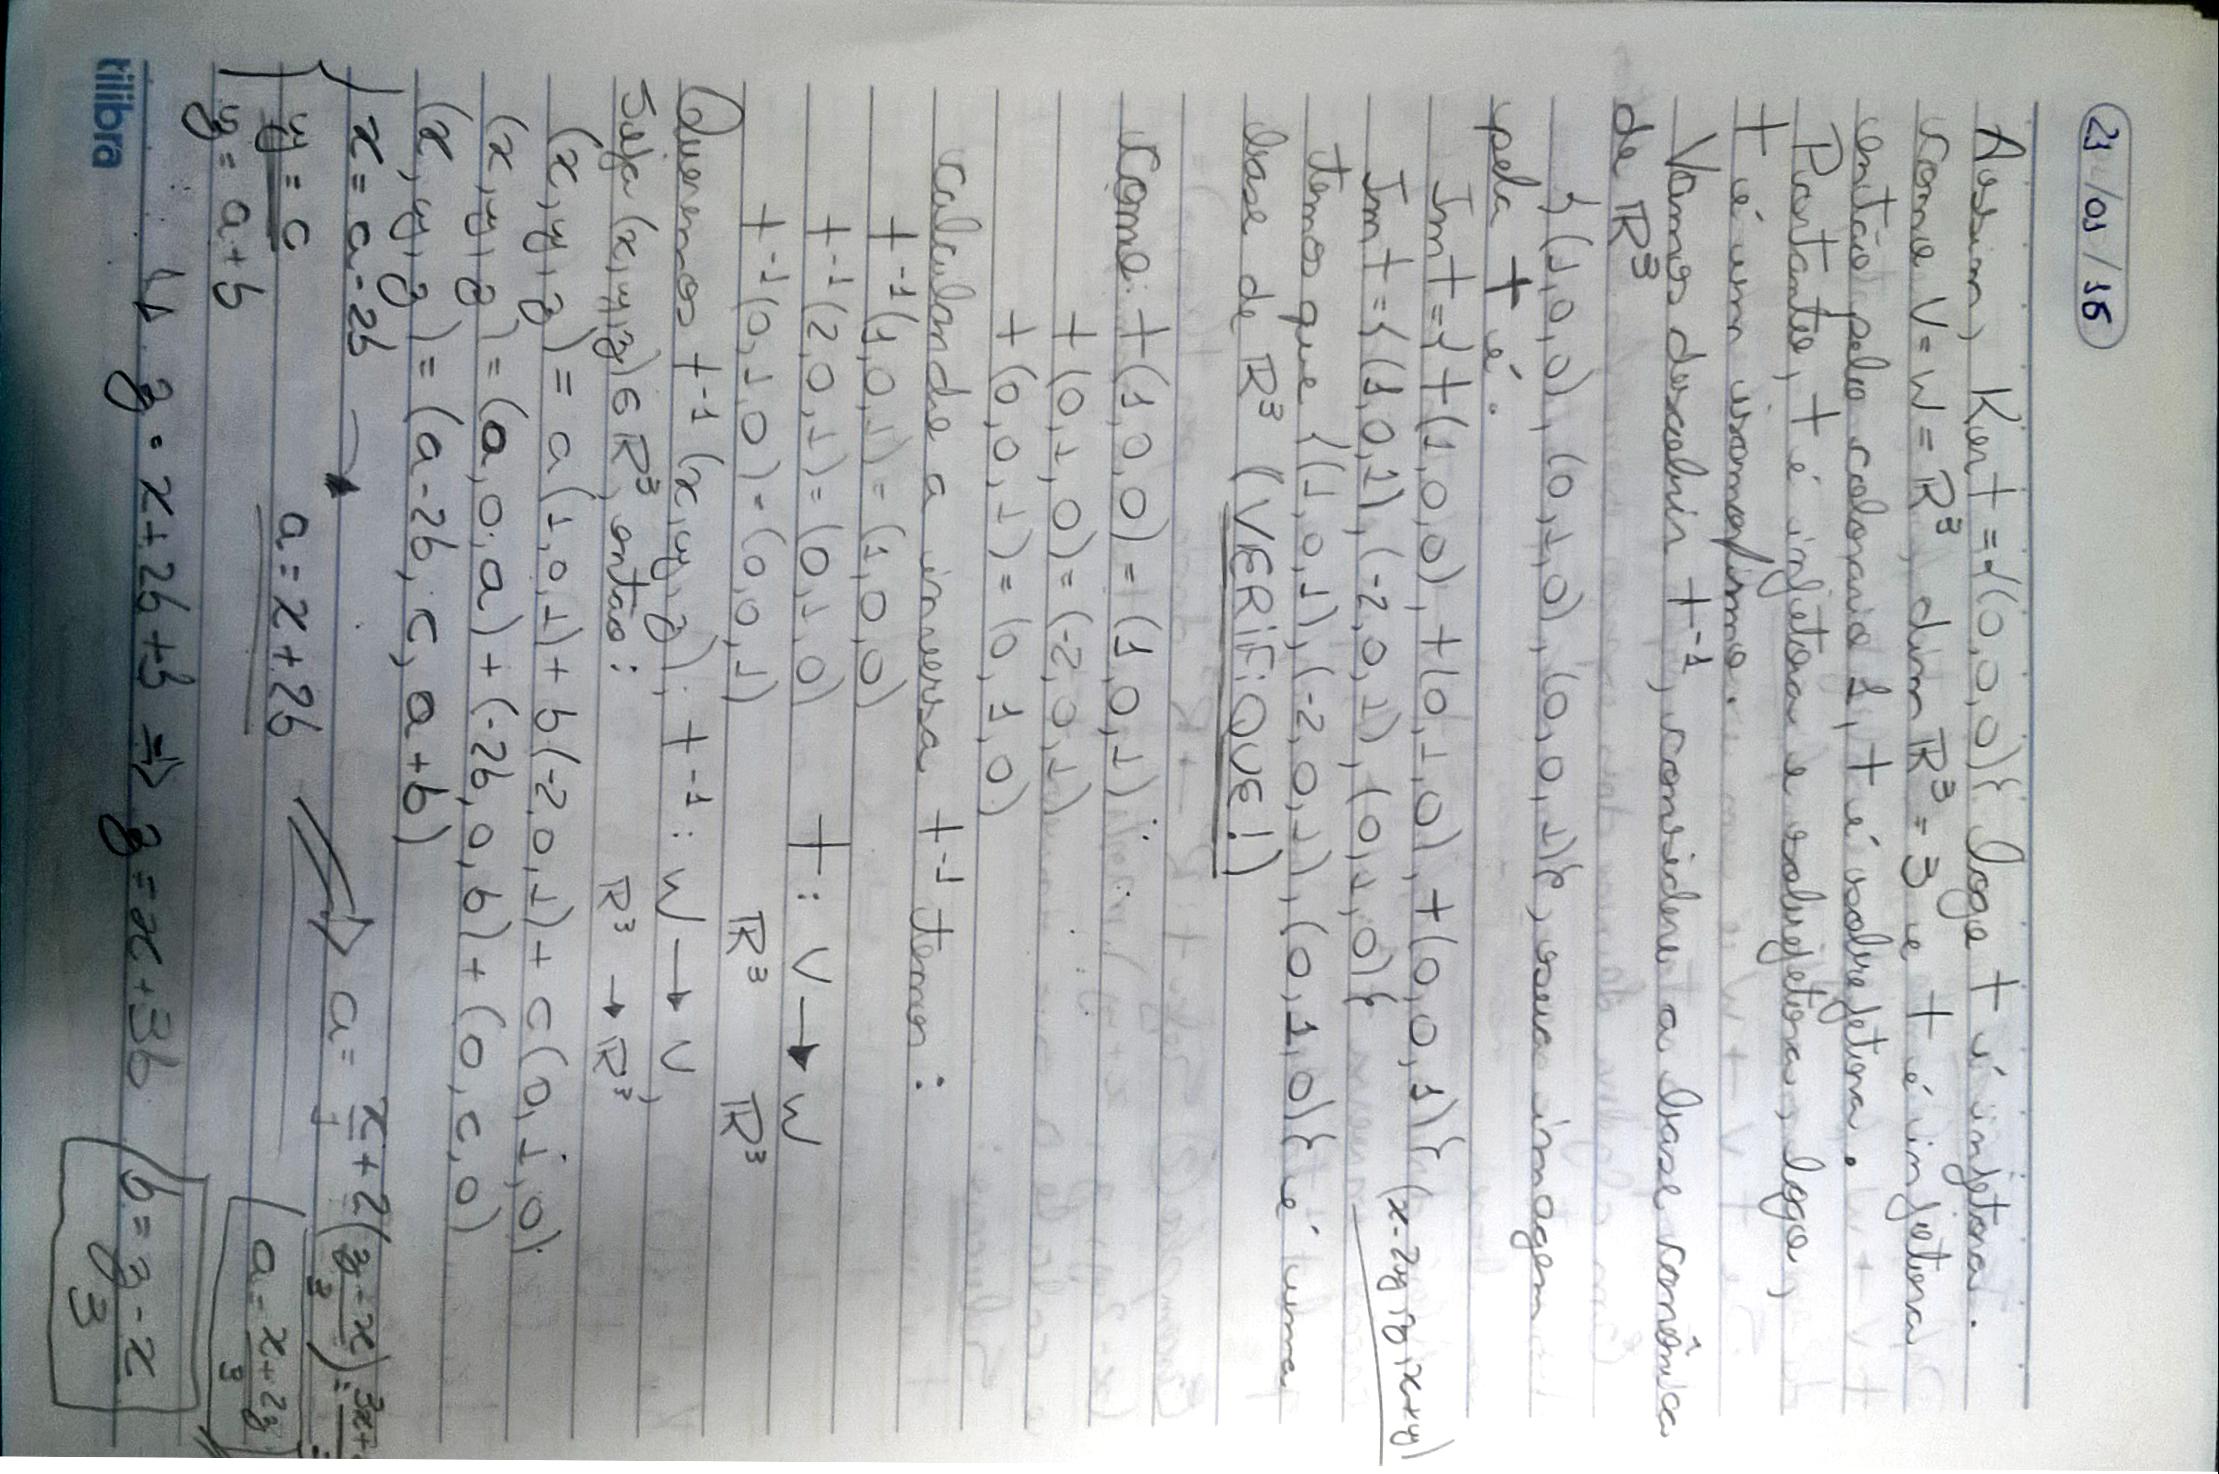 21 / 01 / 16
Assim, Ker t = {(0,0,0)} logo t é injetora.
como V = W = R³, dim R³ = 3 e t é injetora
então pelo colorario 1, t é sobrejetora.
Portanto, t é injetora e sobrejetora, logo,
t é um isomorfismo.
Vamos descobrir t⁻¹, considere a base canônica
de R³
{(1,0,0), (0,1,0), (0,0,1)}, sua imagem
pela t é.
Im t = {t(1,0,0), t(0,1,0), t(0,0,1)}
(x-2y, z, x+y)
Im t = {(1,0,1), (-2,0,1), (0,1,0)}
temos que {(1,0,1), (-2,0,1), (0,1,0)} é uma
base de R³ (VERIFIQUE!)
como: t(1,0,0) = (1,0,1)
t(0,1,0) = (-2,0,1)
t(0,0,1) = (0,1,0)
calculando a inversa t⁻¹ temos:
t⁻¹(1,0,1) = (1,0,0)
t⁻¹(2,0,1) = (0,1,0) T: V → W
t⁻¹(0,1,0) = (0,0,1) R³ R³
Queremos t⁻¹(x,y,z); t⁻¹: W → V,
Seja (x,y,z) ∈ R³, então: R³ → R³
(x,y,z) = a(1,0,1) + b(-2,0,1) + c(0,1,0)
(x,y,z) = (a,0,a) + (-2b,0,b) + (0,c,0)
(x,y,z) = (a-2b, c, a+b)
x = a-2b → ⇒ a = x/1 + 2((z-x)/3) = 3x+
y = c a = x+2b a = (x+2z)/3
z = a+b
↳ z = x+2b+b ⇒ z = x+3b b = (z-x)/3
tilibra